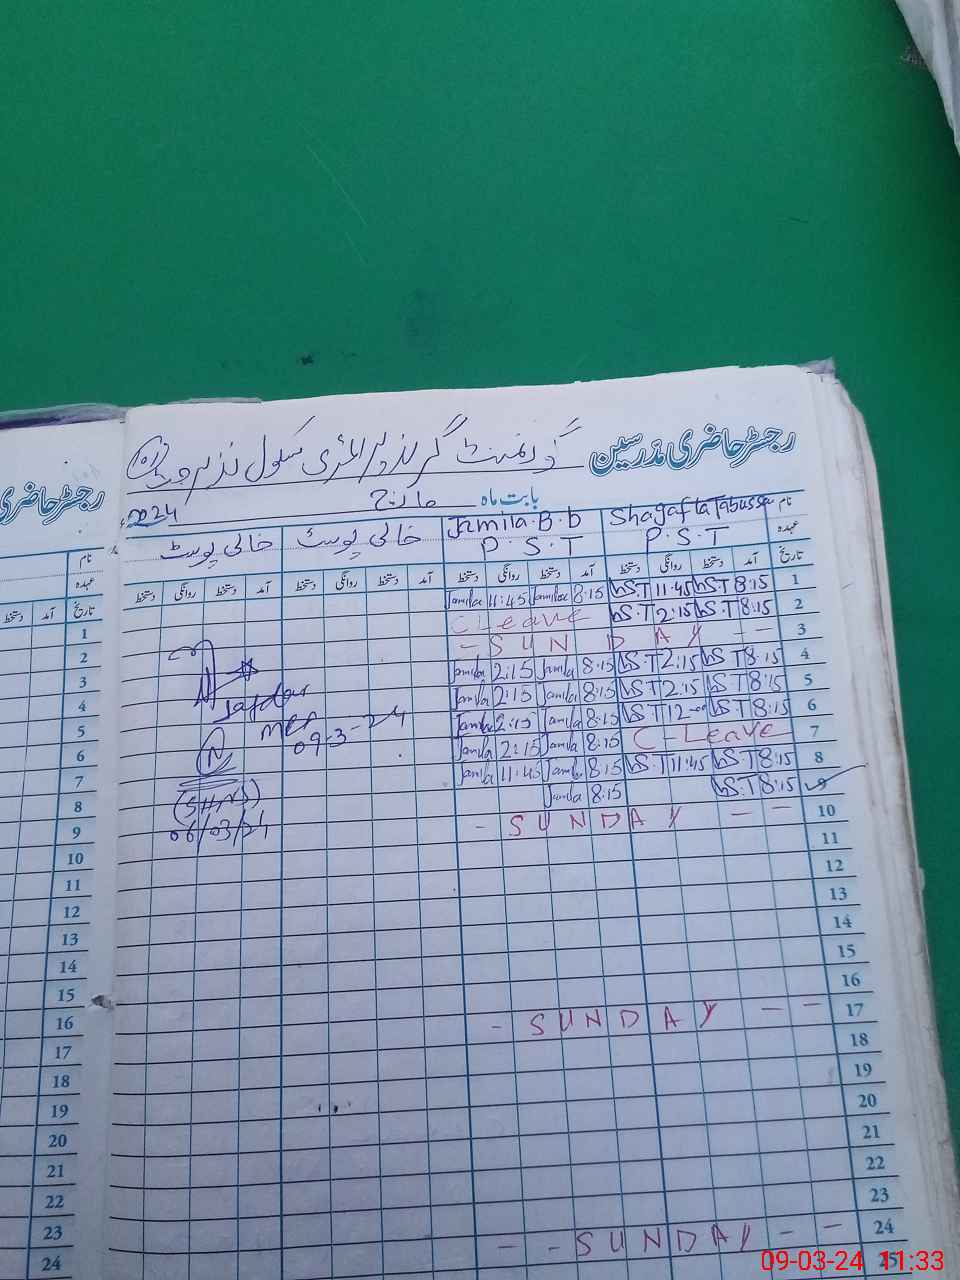 رجسٹر حاضری مدرسین
گورنمنٹ گرلز پرائمری سکول
بابت ماہ مارچ 2024
نام Shagafta Tabussum Jamila B.b خالی پوسٹ خالی پوسٹ
عہدہ P.S.T P.S.T
تاریخ آمد دستخط روانگی دستخط آمد دستخط روانگی دستخط آمد دستخط روانگی دستخط آمد دستخط روانگی دستخط
1 8:15 S.T 11:45 S.T 8:15 Jamila 11:45 Jamila
2 8:15 S.T 2:15 S.T C Leave
3 - S U N D A Y - -
4 8:15 S.T 2:15 S.T 8:15 Jamila 2:15 Jamila
5 8:15 S.T 2:15 S.T 8:15 Jamila 2:15 Jamila
6 8:15 S.T 12-00 S.T 8:15 Jamila 2:15 Jamila
7 C-Leave 8:15 Jamila 2:15 Jamila
8 8:15 S.T 11:45 S.T 8:15 Jamila 11:45 Jamila
9 8:15 S.T 8:15 Jamila
10 - S U N D A Y - -
11
12
13
14
15
16
17 - S U N D A Y - -
18
19
20
21
22
23
24 - - S U N D A Y - -
25
Safdar
09-3-24
N
06/03/24
رجسٹر حاضری
نام
عہدہ
تاریخ آمد دستخط
1
2
3
4
5
6
7
8
9
10
11
12
13
14
15
16
17
18
19
20
21
22
23
24
09-03-24 11:33